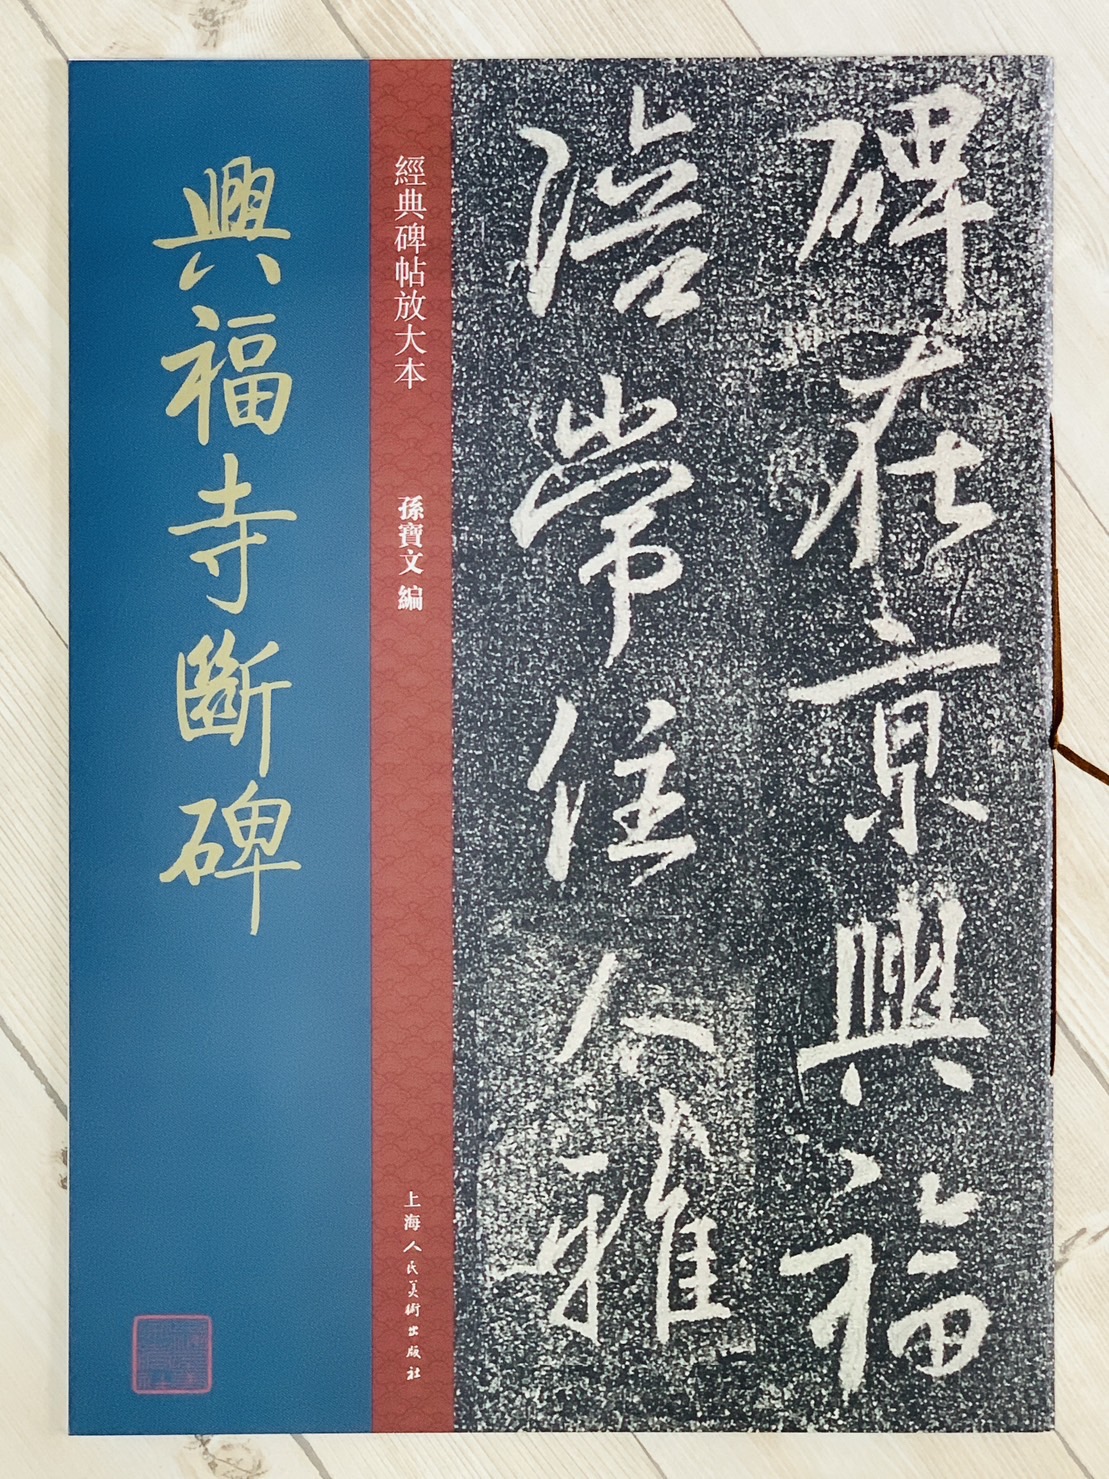 碑在京興福
陪常住雅
經典碑帖放大本
孫寶文 編
上海人民美術出版社
興福寺斷碑